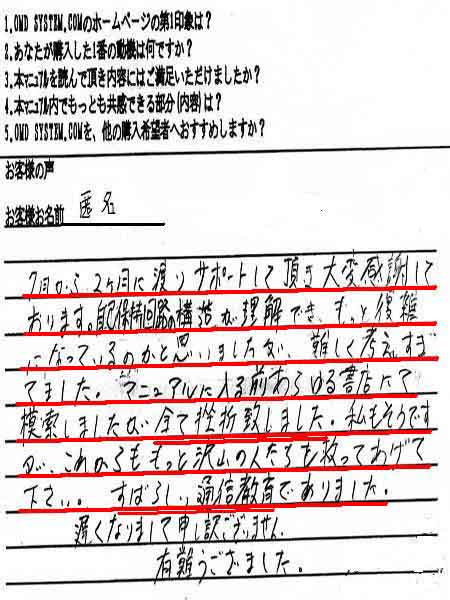 1.OMD SYSTEM.COMのホームページの第1印象は?
2.あなたが購入した1番の動機は何ですか?
3.本マニュアルを読んで頂き内容にはご満足いただけましたか?
4.本マニュアル内でもっとも共感できる部分(内容)は?
5.OMD SYSTEM.COMを、他の購入希望者へおすすめしますか?
お客様の声
お客様お名前 匿名
7月から2ヶ月に渡りサポートして頂き大変感謝して
おります。自己保持回路の構造が理解でき、もっと複雑
になっているのかと思いましたが、難しく考えすぎ
てました。マニュアルに入る前あらゆる書店にて
模索しましたが全て挫折致しました。私もそうです
が、これからももっと沢山の人たちを救ってあげて
下さい。すばらしい通信教育でありました。
遅くなりまして申し訳ございません。
有難うございました。